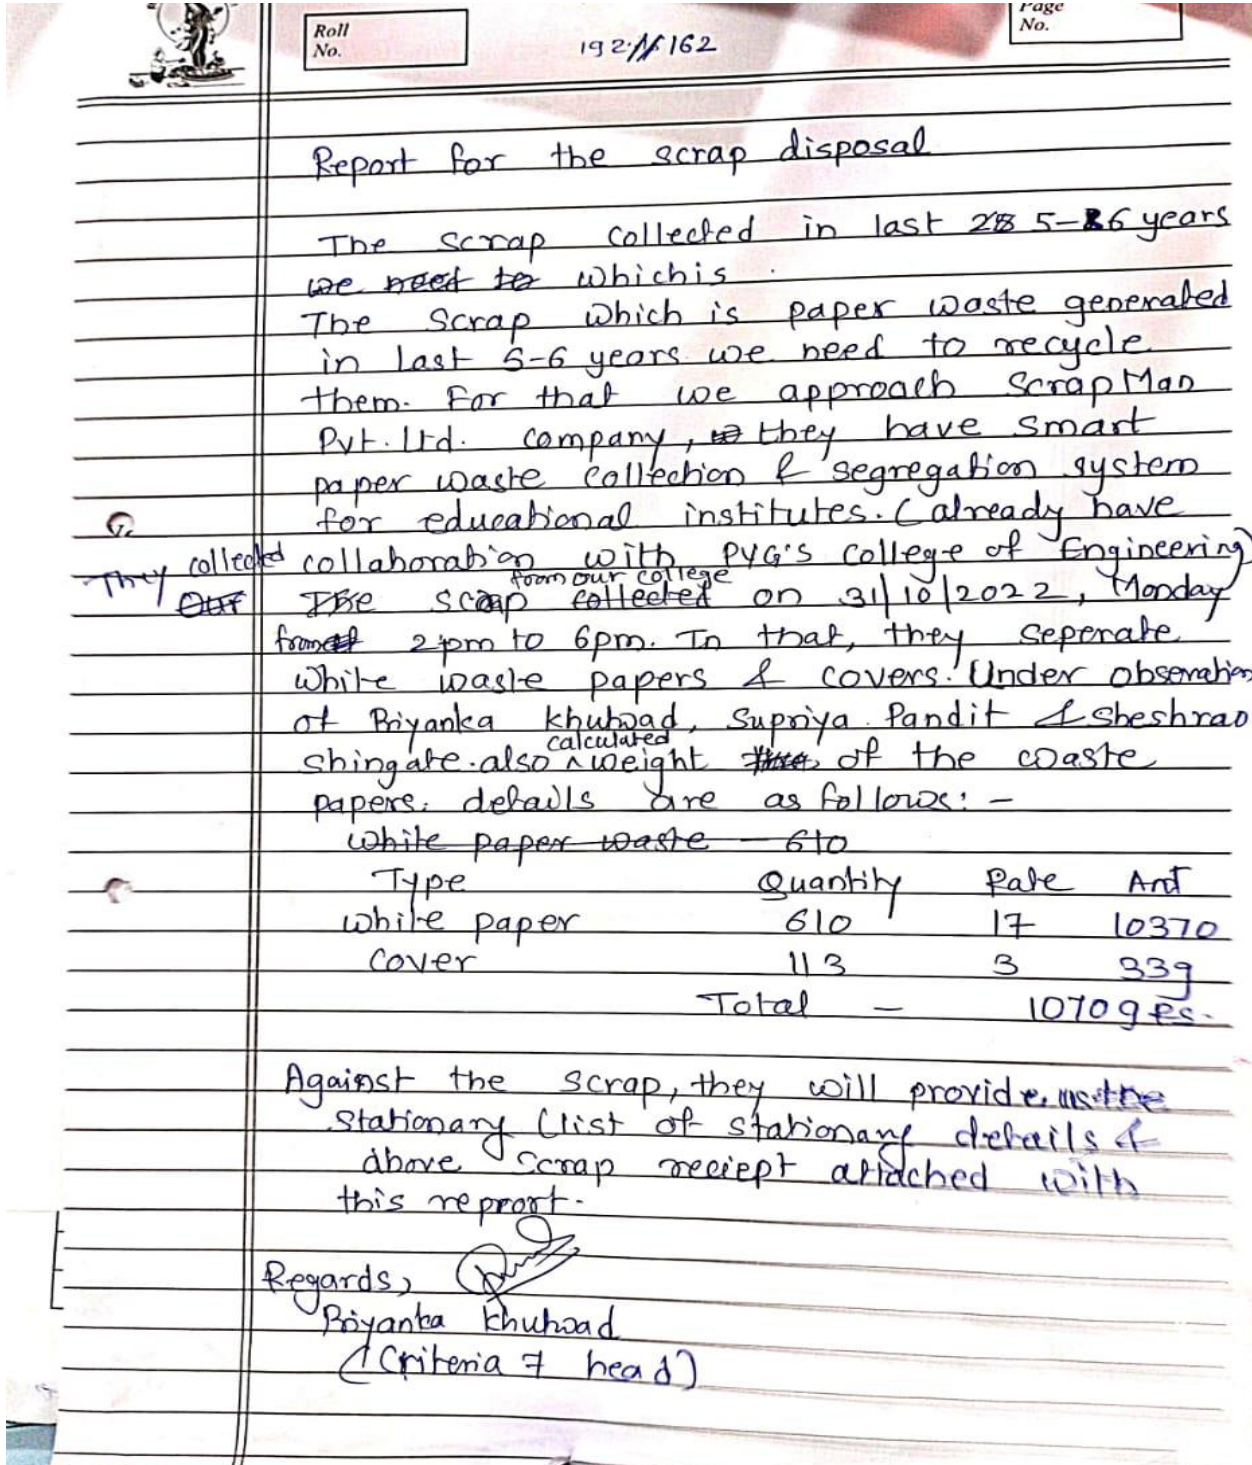 Roll
No.
Page
No.
Report for the scrap disposal
The scrap collected in last 28 5-6 years
we need to whichis .
The Scrap which is paper waste generated
in last 5-6 years we need to recycle
them. For that we approach ScrapMan
Pvt. Ltd. company, they have smart
paper waste collection & segregation system
for educational institutes. (already have
collaboration with PVG's College of Engineering)
They collected Our The scrap from our college collected on 31/10/2022, Monday
from 2 pm to 6pm. In that, they seperate
white waste papers & covers. Under obseration
of Priyanka Khutwad, Supriya Pandit & Sheshrao
Shingate. also calculated weight of the waste
papers. details are as follows: -
white paper waste - 610
Type Quantity Rate Amt
white paper 610 17 10370
Cover 113 3 339
Total - 10709 Rs.
Against the scrap, they will provide us the
stationary (list of stationary details &
above scrap reciept attached with
this reprort.
Regards,
Priyanka Khutwad
(Criteria 7 head)